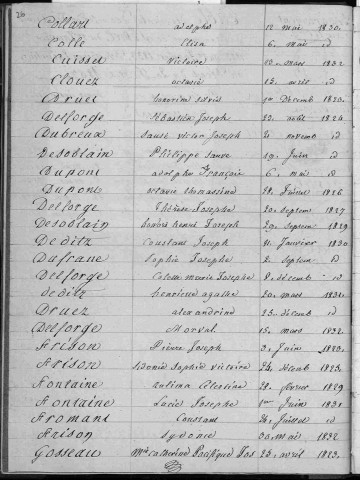 26
Collart adolphe 12 mai 1830.
Colle Elisa 6. mai id
Cuisset Victoire 10. mars 1832.
Clouez octavie 15. avril id
Druet 1er Décemb 1823.
Delforge Sébastien Joseph 23. août 1824
Dubreux Victor Joseph 2. novemb id
Desoblain Philippe 19. Juin id
Dupont adolphe François 6. mai id
Dupont octavie thomassine 28. 1826.
Delforge Thérèse Josephe 20. Septem 1827
Desoblain honoré henri Joseph 29. Septem 1829
Deditz Constant Joseph 11. Janvier 1830.
Dufrane Sophie Josephe 2. Septem id
Delforge Colette marie Josephe 8. décemb id
deditz henriette agathe 20. mars 1831.
Druez alexandrine 23. décemb id
Delforge Florval 15. mars 1832.
Frison Pierre Joseph 3. Juin 1823.
Frison Sidonie Sophie Victoire 24. décemb 1823.
Fontaine Celestine 28. fevrier 1829
Fontaine Lucie Josephe 1er Juin 1831.
Fromont Constant 26. Juillet id
Frison Sydonie 30. Mai 1832.
Gosseau Mie Catherine Pacifique 23. avril 1823.